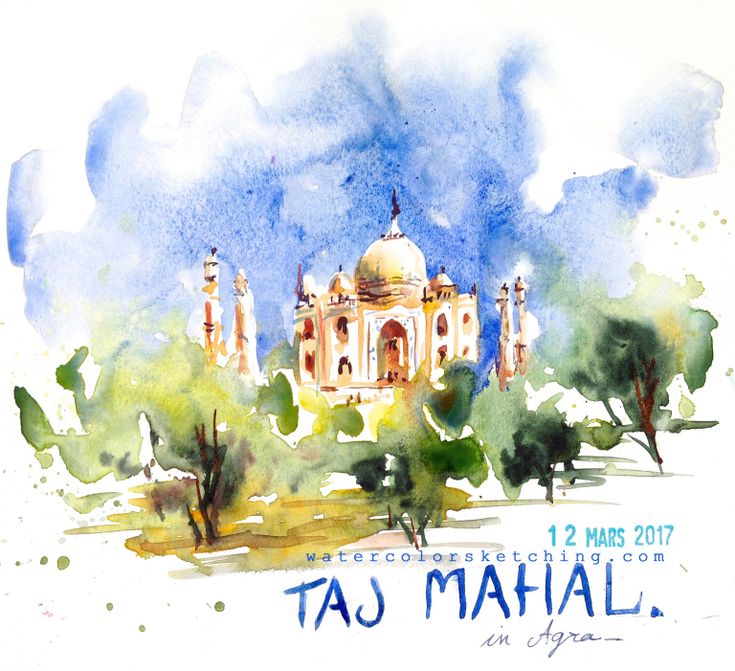 12 MARS 2017
watercolorsketching.com
TAJ MAHAL.
in Agra